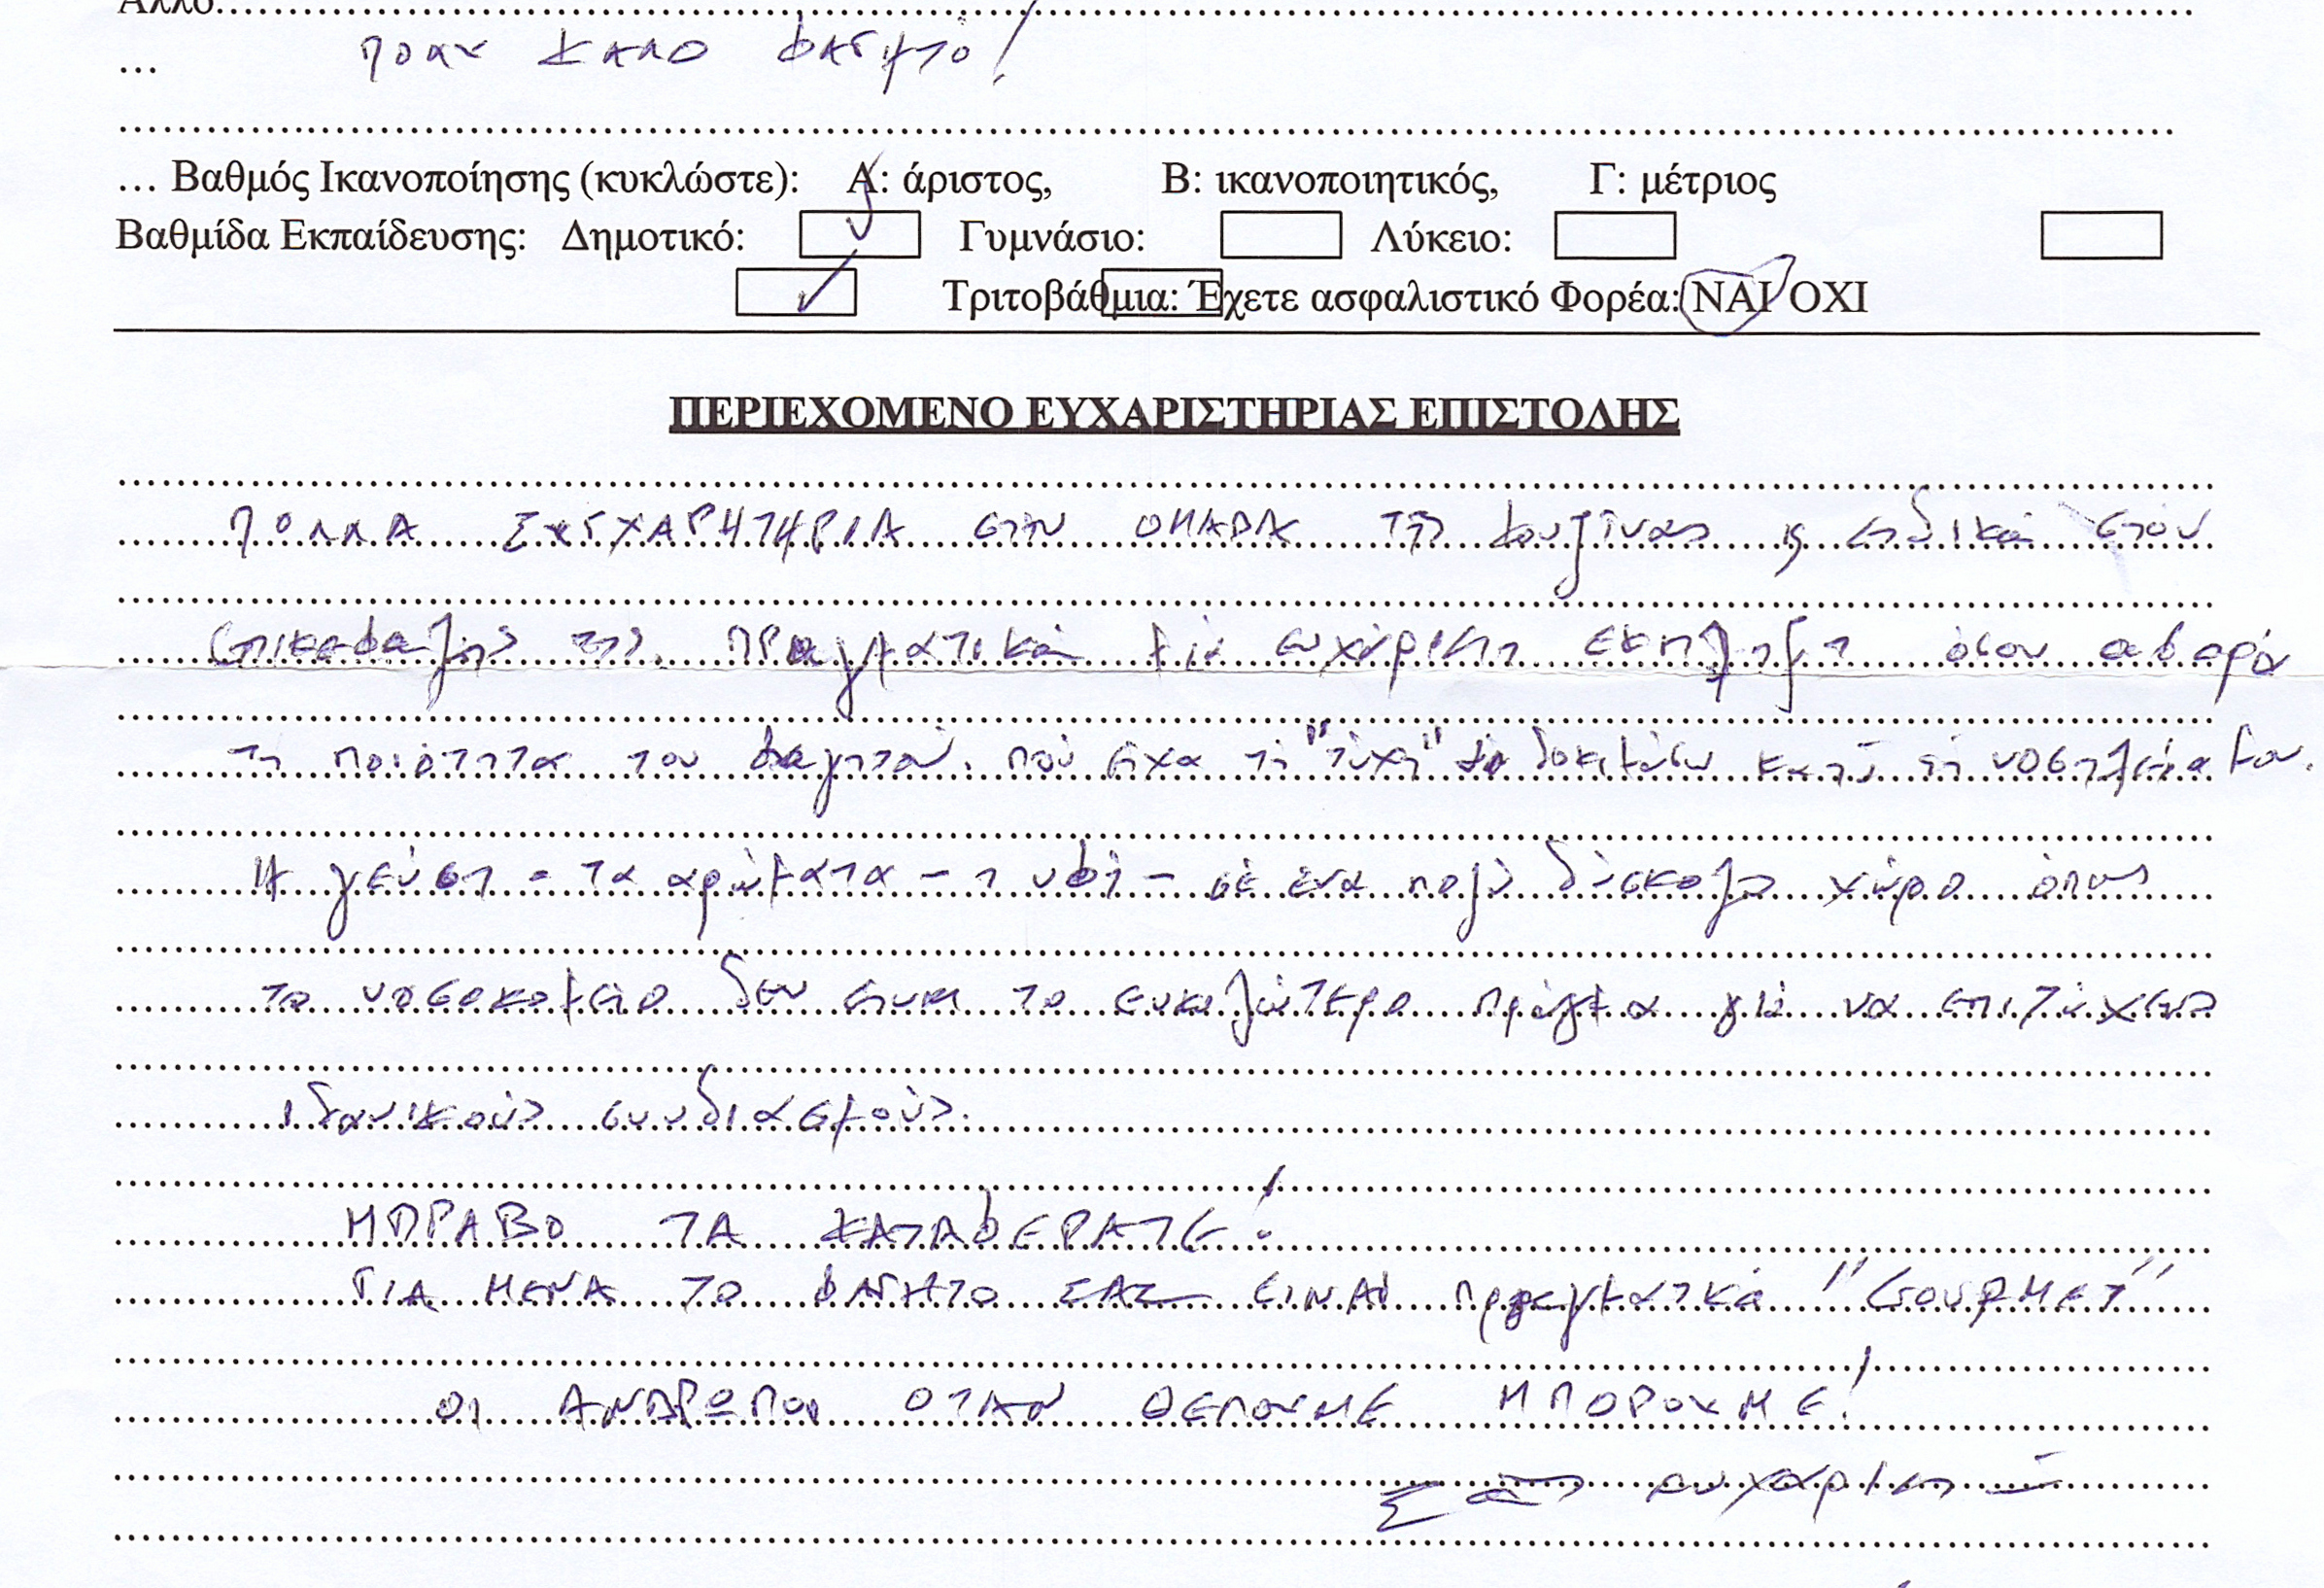 Άλλο
... ΠΟΛΥ ΚΑΛΟ ΦΑΓΗΤΟ!
... Βαθμός Ικανοποίησης (κυκλώστε): Α: άριστος, Β: ικανοποιητικός, Γ: μέτριος
Βαθμίδα Εκπαίδευσης: Δημοτικό: Γυμνάσιο: Λύκειο:
Τριτοβάθμια: Έχετε ασφαλιστικό Φορέα: ΝΑΙ ΟΧΙ
ΠΕΡΙΕΧΟΜΕΝΟ ΕΥΧΑΡΙΣΤΗΡΙΑΣ ΕΠΙΣΤΟΛΗΣ
ΠΟΛΛΑ ΣΥΓΧΑΡΗΤΗΡΙΑ στην ΟΜΑΔΑ της κουζίνας & ειδικά στον
επικεφαλής της. Πραγματικά μια ευχάριστη έκπληξη όσον αφορά
τη ποιότητα του φαγητού. που είχα τη "τύχη" να δοκιμάσω κατά τη νοσηλεία μου.
Η γεύση - τα αρώματα - η υφή - σε ένα πολύ δύσκολο χώρο όπως
το νοσοκομείο δεν είναι το ευκολώτερο πράγμα για να επιτύχεις
ιδανικούς συνδιασμούς.
ΜΠΡΑΒΟ ΤΑ ΚΑΤΑΦΕΡΑΤΕ!
ΓΙΑ ΜΕΝΑ ΤΟ ΦΑΓΗΤΟ ΣΑΣ ΕΙΝΑΙ πραγματικά "GOURMET"
ΟΙ ΑΝΘΡΩΠΟΙ ΟΤΑΝ ΘΕΛΟΥΜΕ ΜΠΟΡΟΥΜΕ!
Σας ευχαριστώ